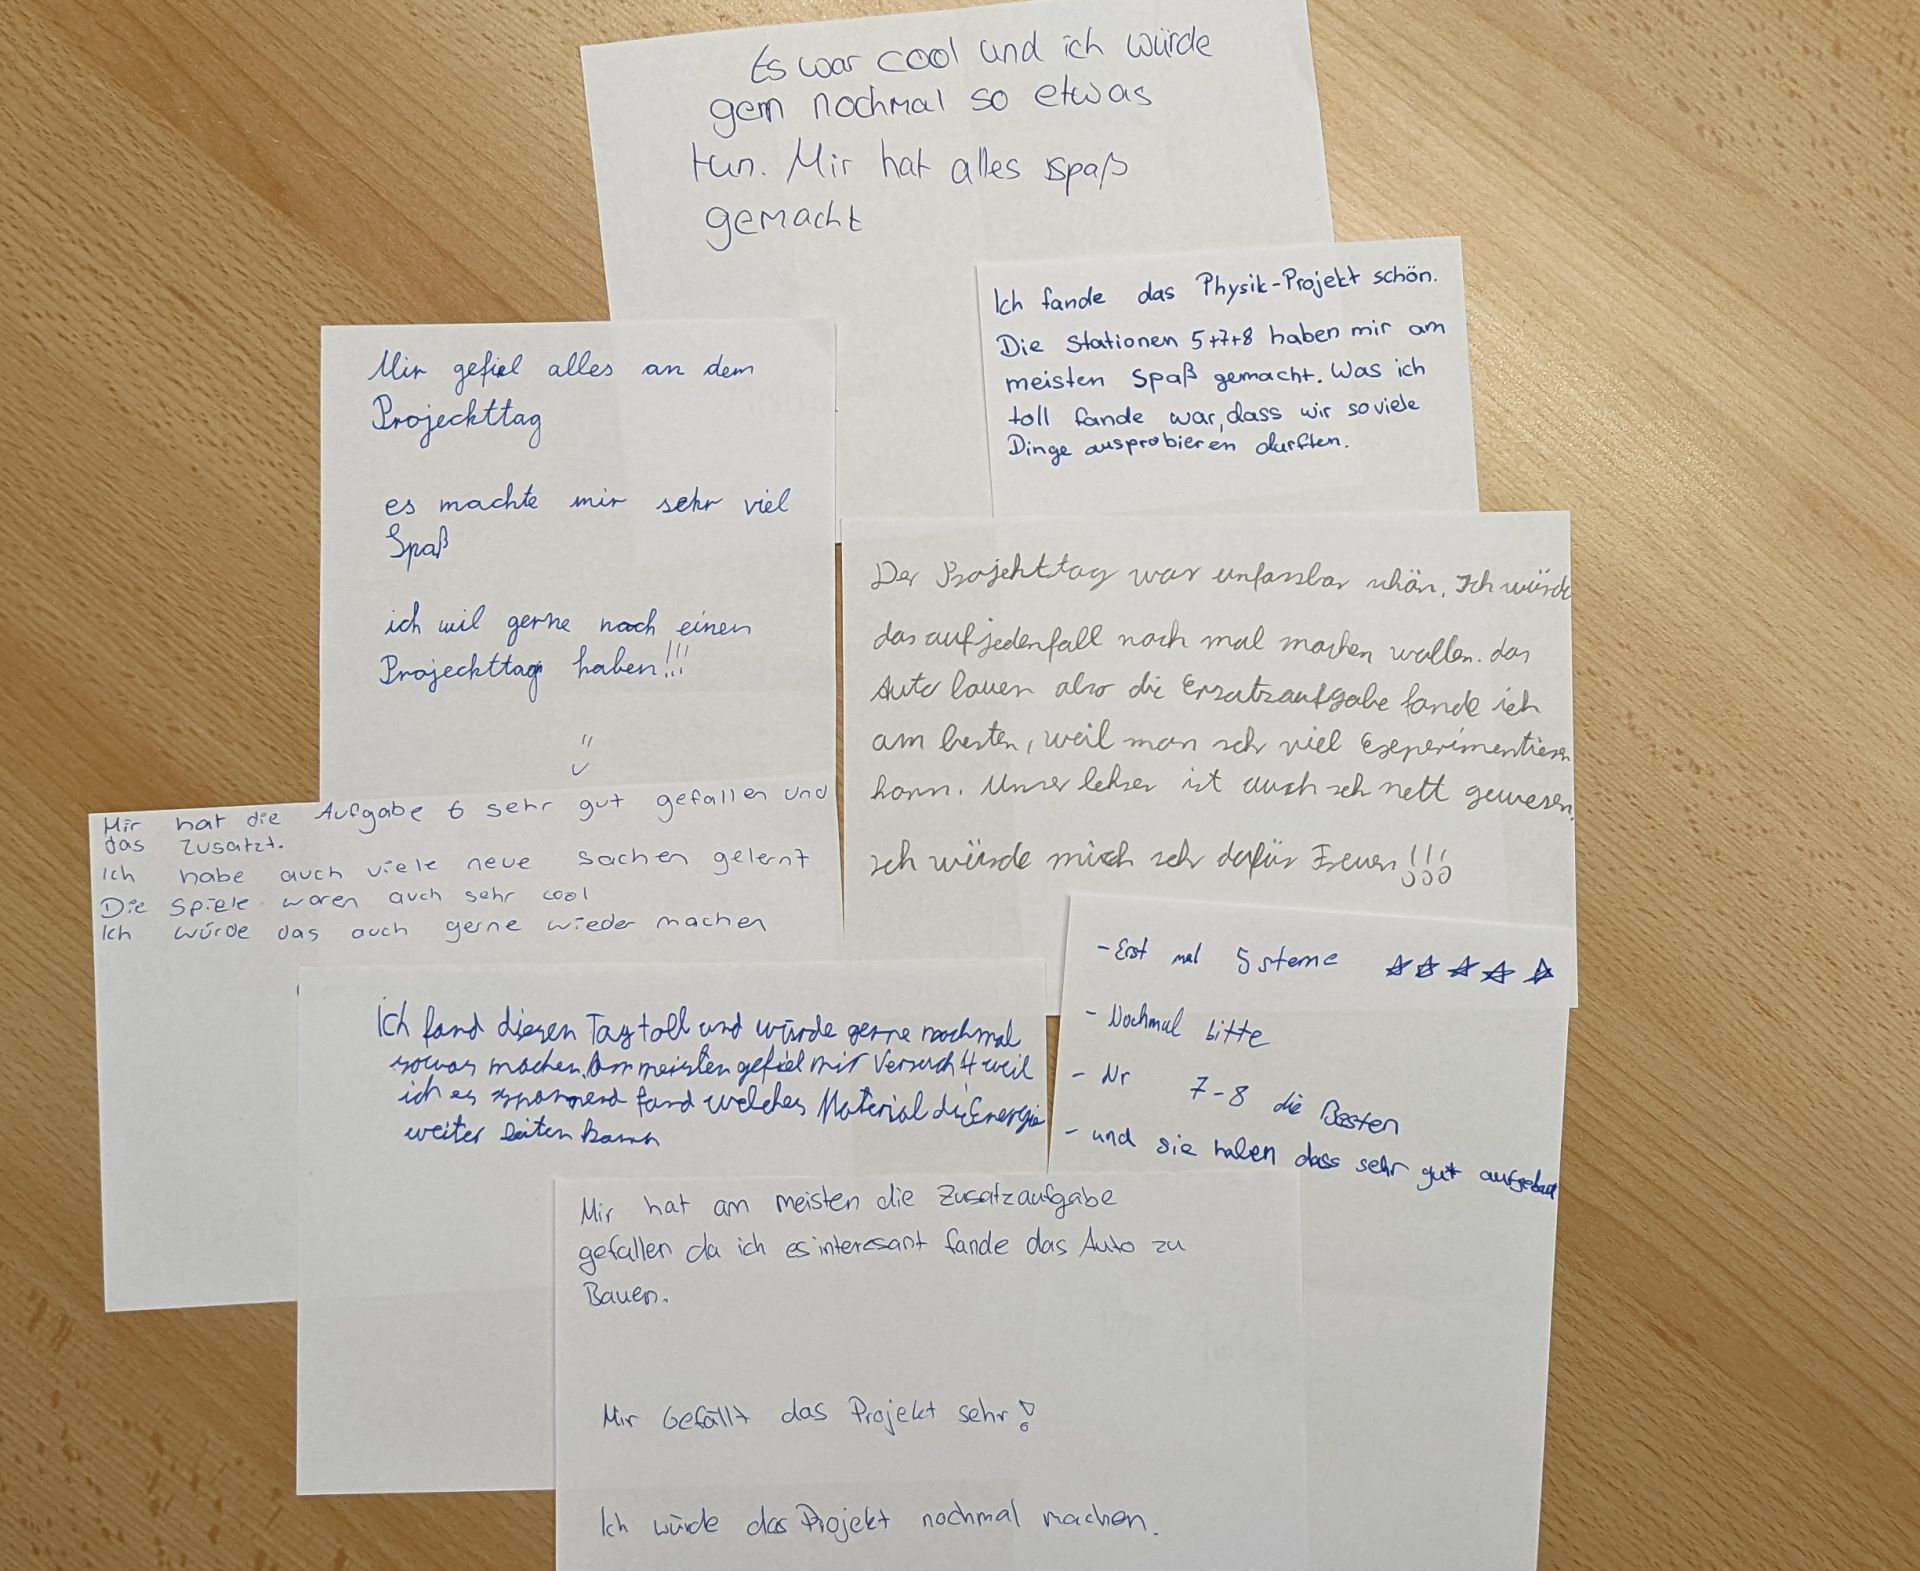 Es war cool und ich würde
gern nochmal so etwas
tun. Mir hat alles spaß
gemacht
Ich fande das Physik-Projekt schön.
Die Stationen 5+7+8 haben mir am
meisten Spaß gemacht. Was ich
toll fande war, dass wir soviele
Dinge ausprobieren durften.
Mir gefiel alles an dem
Projeckttag
es machte mir sehr viel
Spaß
ich wil gerne noch einen
Projeckttag haben!!!
Der Projekttag war unfassbar schön. Ich würde
das aufjedenfall noch mal machen wollen. das
Auto bauen also die Ersatzaufgabe fande ich
am besten, weil man seh viel Experimentieren
kann. Unser lehrer ist auch seh nett gewesen.
ich würde mich seh dafür Freuen!!!
Mir hat die Aufgabe 6 sehr gut gefallen und
das Zusatzt.
Ich habe auch viele neue sachen gelernt
Die Spiele waren auch sehr cool
Ich würde das auch gerne wieder machen
- Erst mal 5 sterne ☆☆☆☆☆
- Nochmal bitte
- Nr 7-8 die Besten
- und sie haben dass sehr gut aufgebaut
Ich fand diesen Tag toll und würde gerne nochmal
sowas machen. Am meisten gefiel mir Versuch 4 weil
ich es spannend fand welches Material die Energie
weiter leiten kann
Mir hat am meisten die Zusatzaufgabe
gefallen da ich es interesant fande das Auto zu
Bauen.
Mir Gefällt das Projekt sehr!
Ich würde das Projekt nochmal machen.